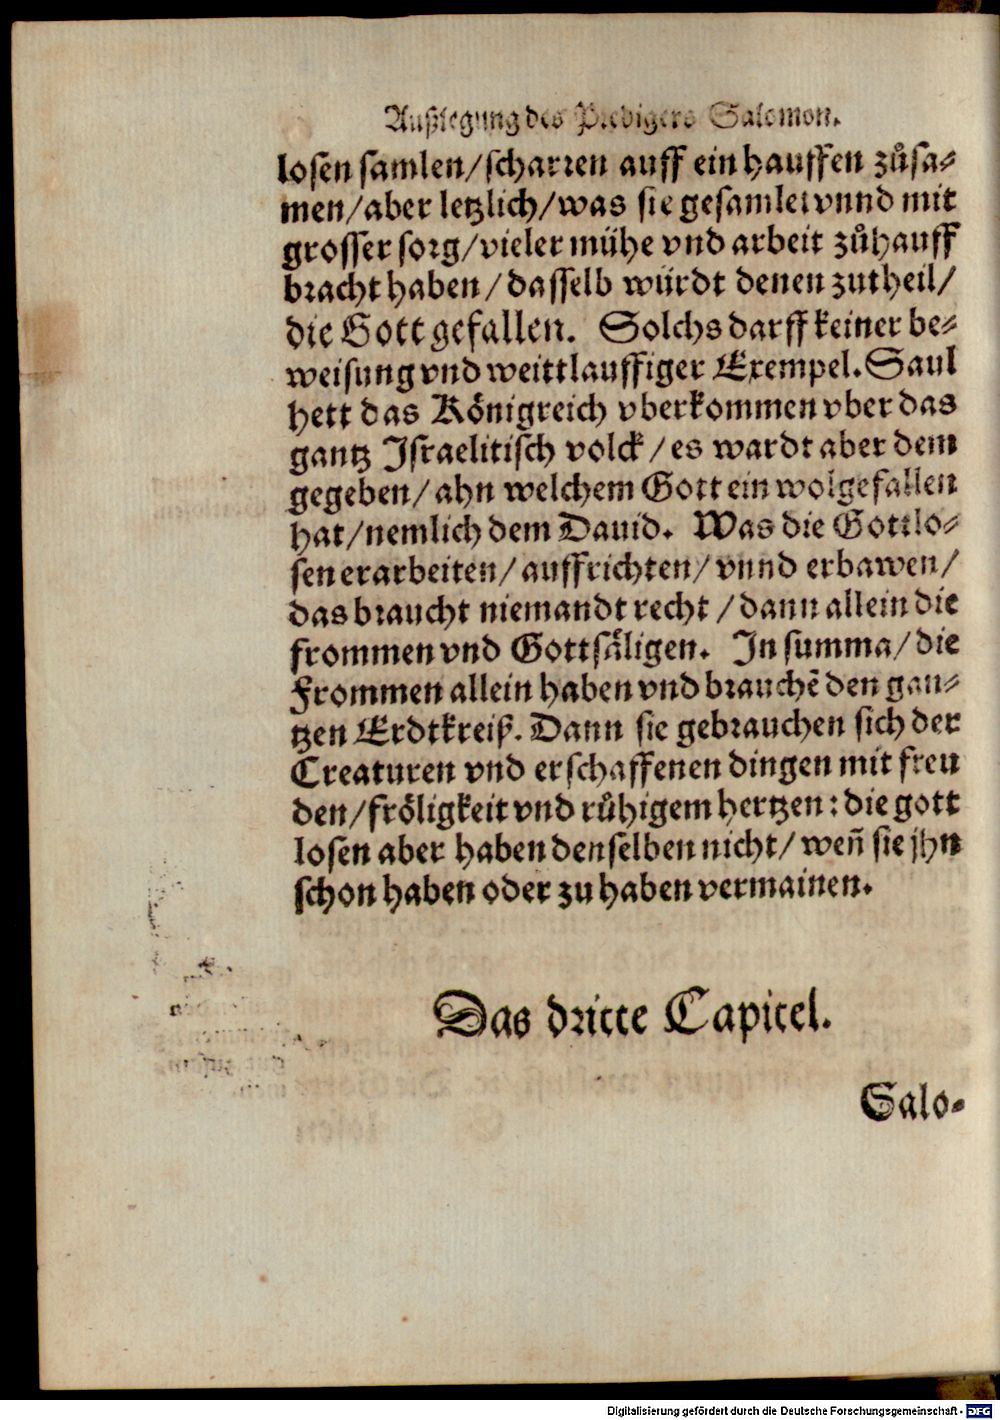 Außlegung des Predigers Salomon.
losen samlen/scharren auff ein hauffen zůsa⸗
men/aber letzlich/was sie gesamlet vnnd mit
grosser sorg/vieler mühe vnd arbeit zůhauff
bracht haben/dasselb würdt denen zutheil/
die Gott gefallen. Solchs darff keiner be⸗
weisung vnd weittlauffiger Exempel. Saul
hett das Königreich vberkommen vber das
gantz Israelitisch volck/es wardt aber dem
gegeben/ahn welchem Gott ein wolgefallen
hat/nemlich dem Dauid. Was die Gottlo⸗
sen erarbeiten/auffrichten/vnnd erbawen/
das braucht niemandt recht/dann allein die
frommen vnd Gottsäligen. In summa/die
Frommen allein haben vnd brauchẽ den gan⸗
tzen Erdtkreiß. Dann sie gebrauchen sich der
Creaturen vnd erschaffenen dingen mit freu
den/fröligkeit vnd růhigem hertzen: die gott
losen aber haben denselben nicht/weñ sie jhn
schon haben oder zu haben vermainen.
Das dritte Capitel.
Salo⸗
Digitalisierung gefördert durch die Deutsche Forschungsgemeinschaft - DFG